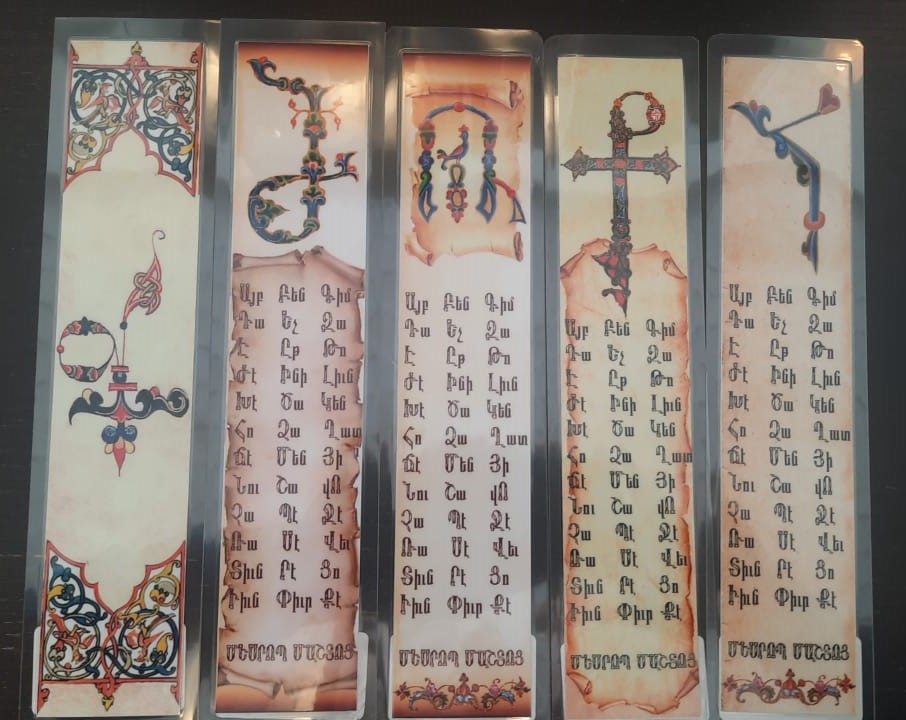 Այբ Բեն Գիմ
Դա Եչ Զա
Է Ըթ Թո
Ժէ Ինի Լիւն
Խէ Ծա Կեն
Հո Ձա Ղատ
Ճէ Մեն Յի
Նու Շա վՈ
Չա Պէ Ջէ
Ռա Սէ Վեւ
Տիւն Րէ Ցո
Ւիւն Փիւր Քէ
ՄԵՍՐՈՊ ՄԱՇՏՈՑ
Այբ Բեն Գիմ
Դա Եչ Զա
Է Ըթ Թո
Ժէ Ինի Լիւն
Խէ Ծա Կեն
Հո Ձա Ղատ
Ճէ Մեն Յի
Նու Շա վՈ
Չա Պէ Ջէ
Ռա Սէ Վեւ
Տիւն Րէ Ցո
Ւիւն Փիւր Քէ
ՄԵՍՐՈՊ ՄԱՇՏՈՑ
Այբ Բեն Գիմ
Դա Եչ Զա
Է Ըթ Թո
Ժէ Ինի Լիւն
Խէ Ծա Կեն
Հո Ձա Ղատ
Ճէ Մեն Յի
Նու Շա վՈ
Չա Պէ Ջէ
Ռա Սէ Վեւ
Տիւն Րէ Ցո
Ւիւն Փիւր Քէ
ՄԵՍՐՈՊ ՄԱՇՏՈՑ
Այբ Բեն Գիմ
Դա Եչ Զա
Է Ըթ Թո
Ժէ Ինի Լիւն
Խէ Ծա Կեն
Հո Ձա Ղատ
Ճէ Մեն Յի
Նու Շա վՈ
Չա Պէ Ջէ
Ռա Սէ Վեւ
Տիւն Րէ Ցո
Ւիւն Փիւր Քէ
ՄԵՍՐՈՊ ՄԱՇՏՈՑ